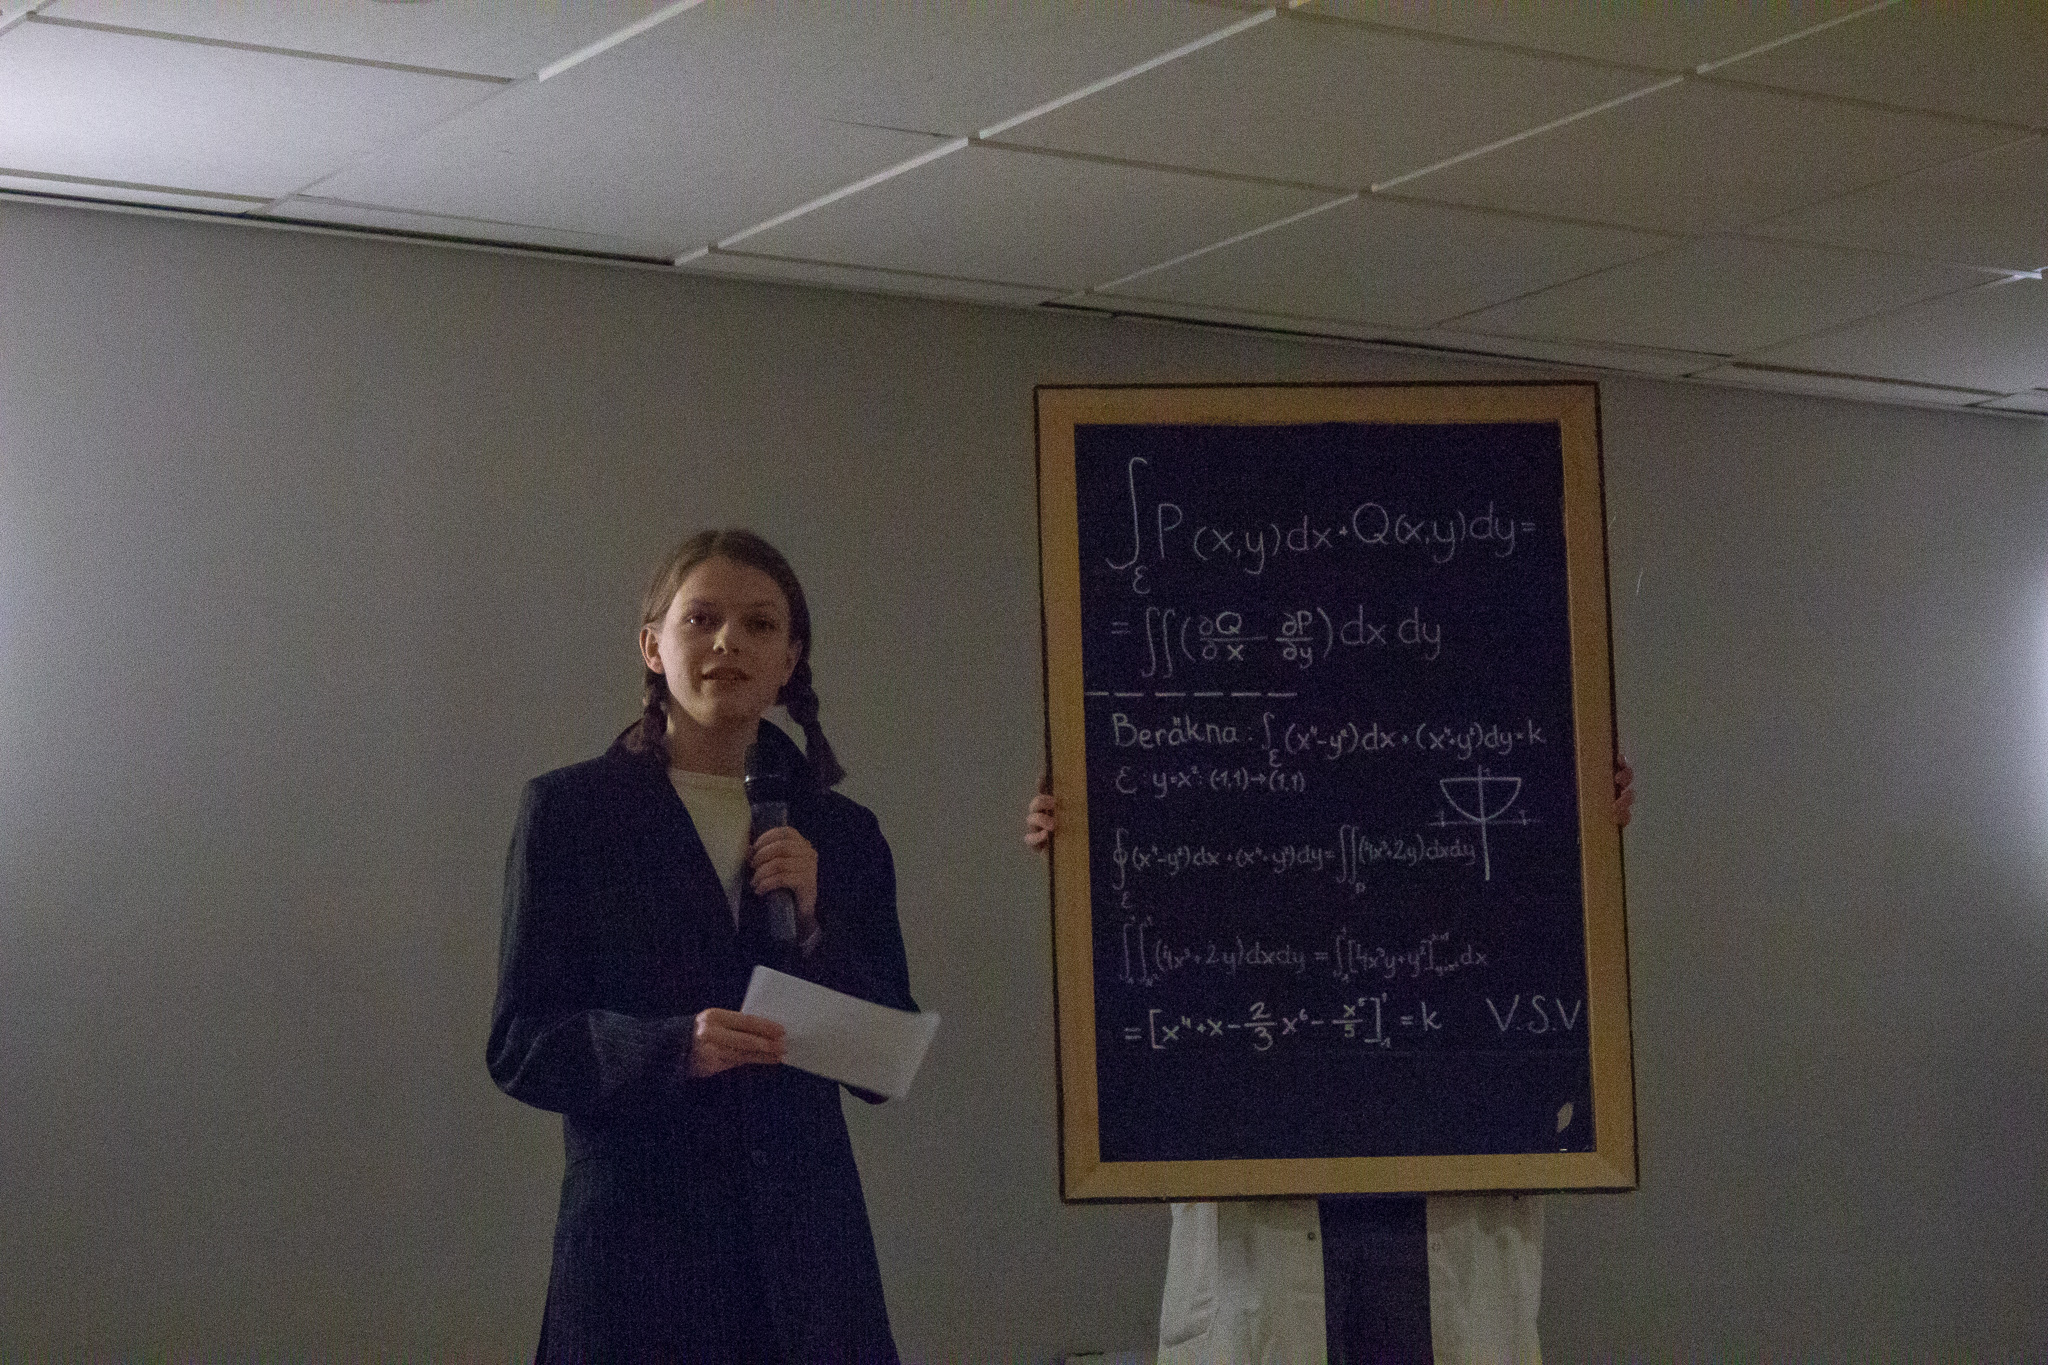 ∫_ε P(x,y)dx+Q(x,y)dy=
=∬(∂Q/∂x - ∂P/∂y)dx dy
Beräkna: ∫_ε (x⁴-y²)dx+(x⁴+y²)dy=k
ε: y=x²: (-1,1)→(1,1)
∮_ε (x⁴-y²)dx+(x⁴+y²)dy=∬_D (4x³+2y)dxdy
∫∫(4x³+2y)dxdy = ∫[4x³y+y²]dx
=[x⁴+x-2/3 x⁶-x⁵/5]=k V.S.V